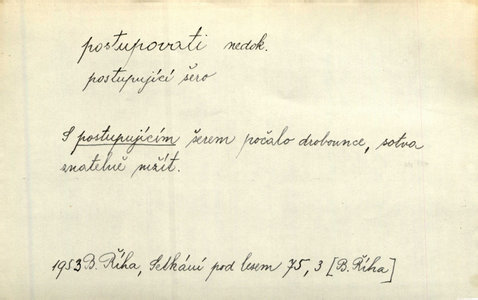 postupovati nedok.
postupující šero
S postupujícím šerem počalo drobounce, sotva
znatelně mžít.
1953 B. Říha, Setkání pod lesem 75, 3 [B. Říha]